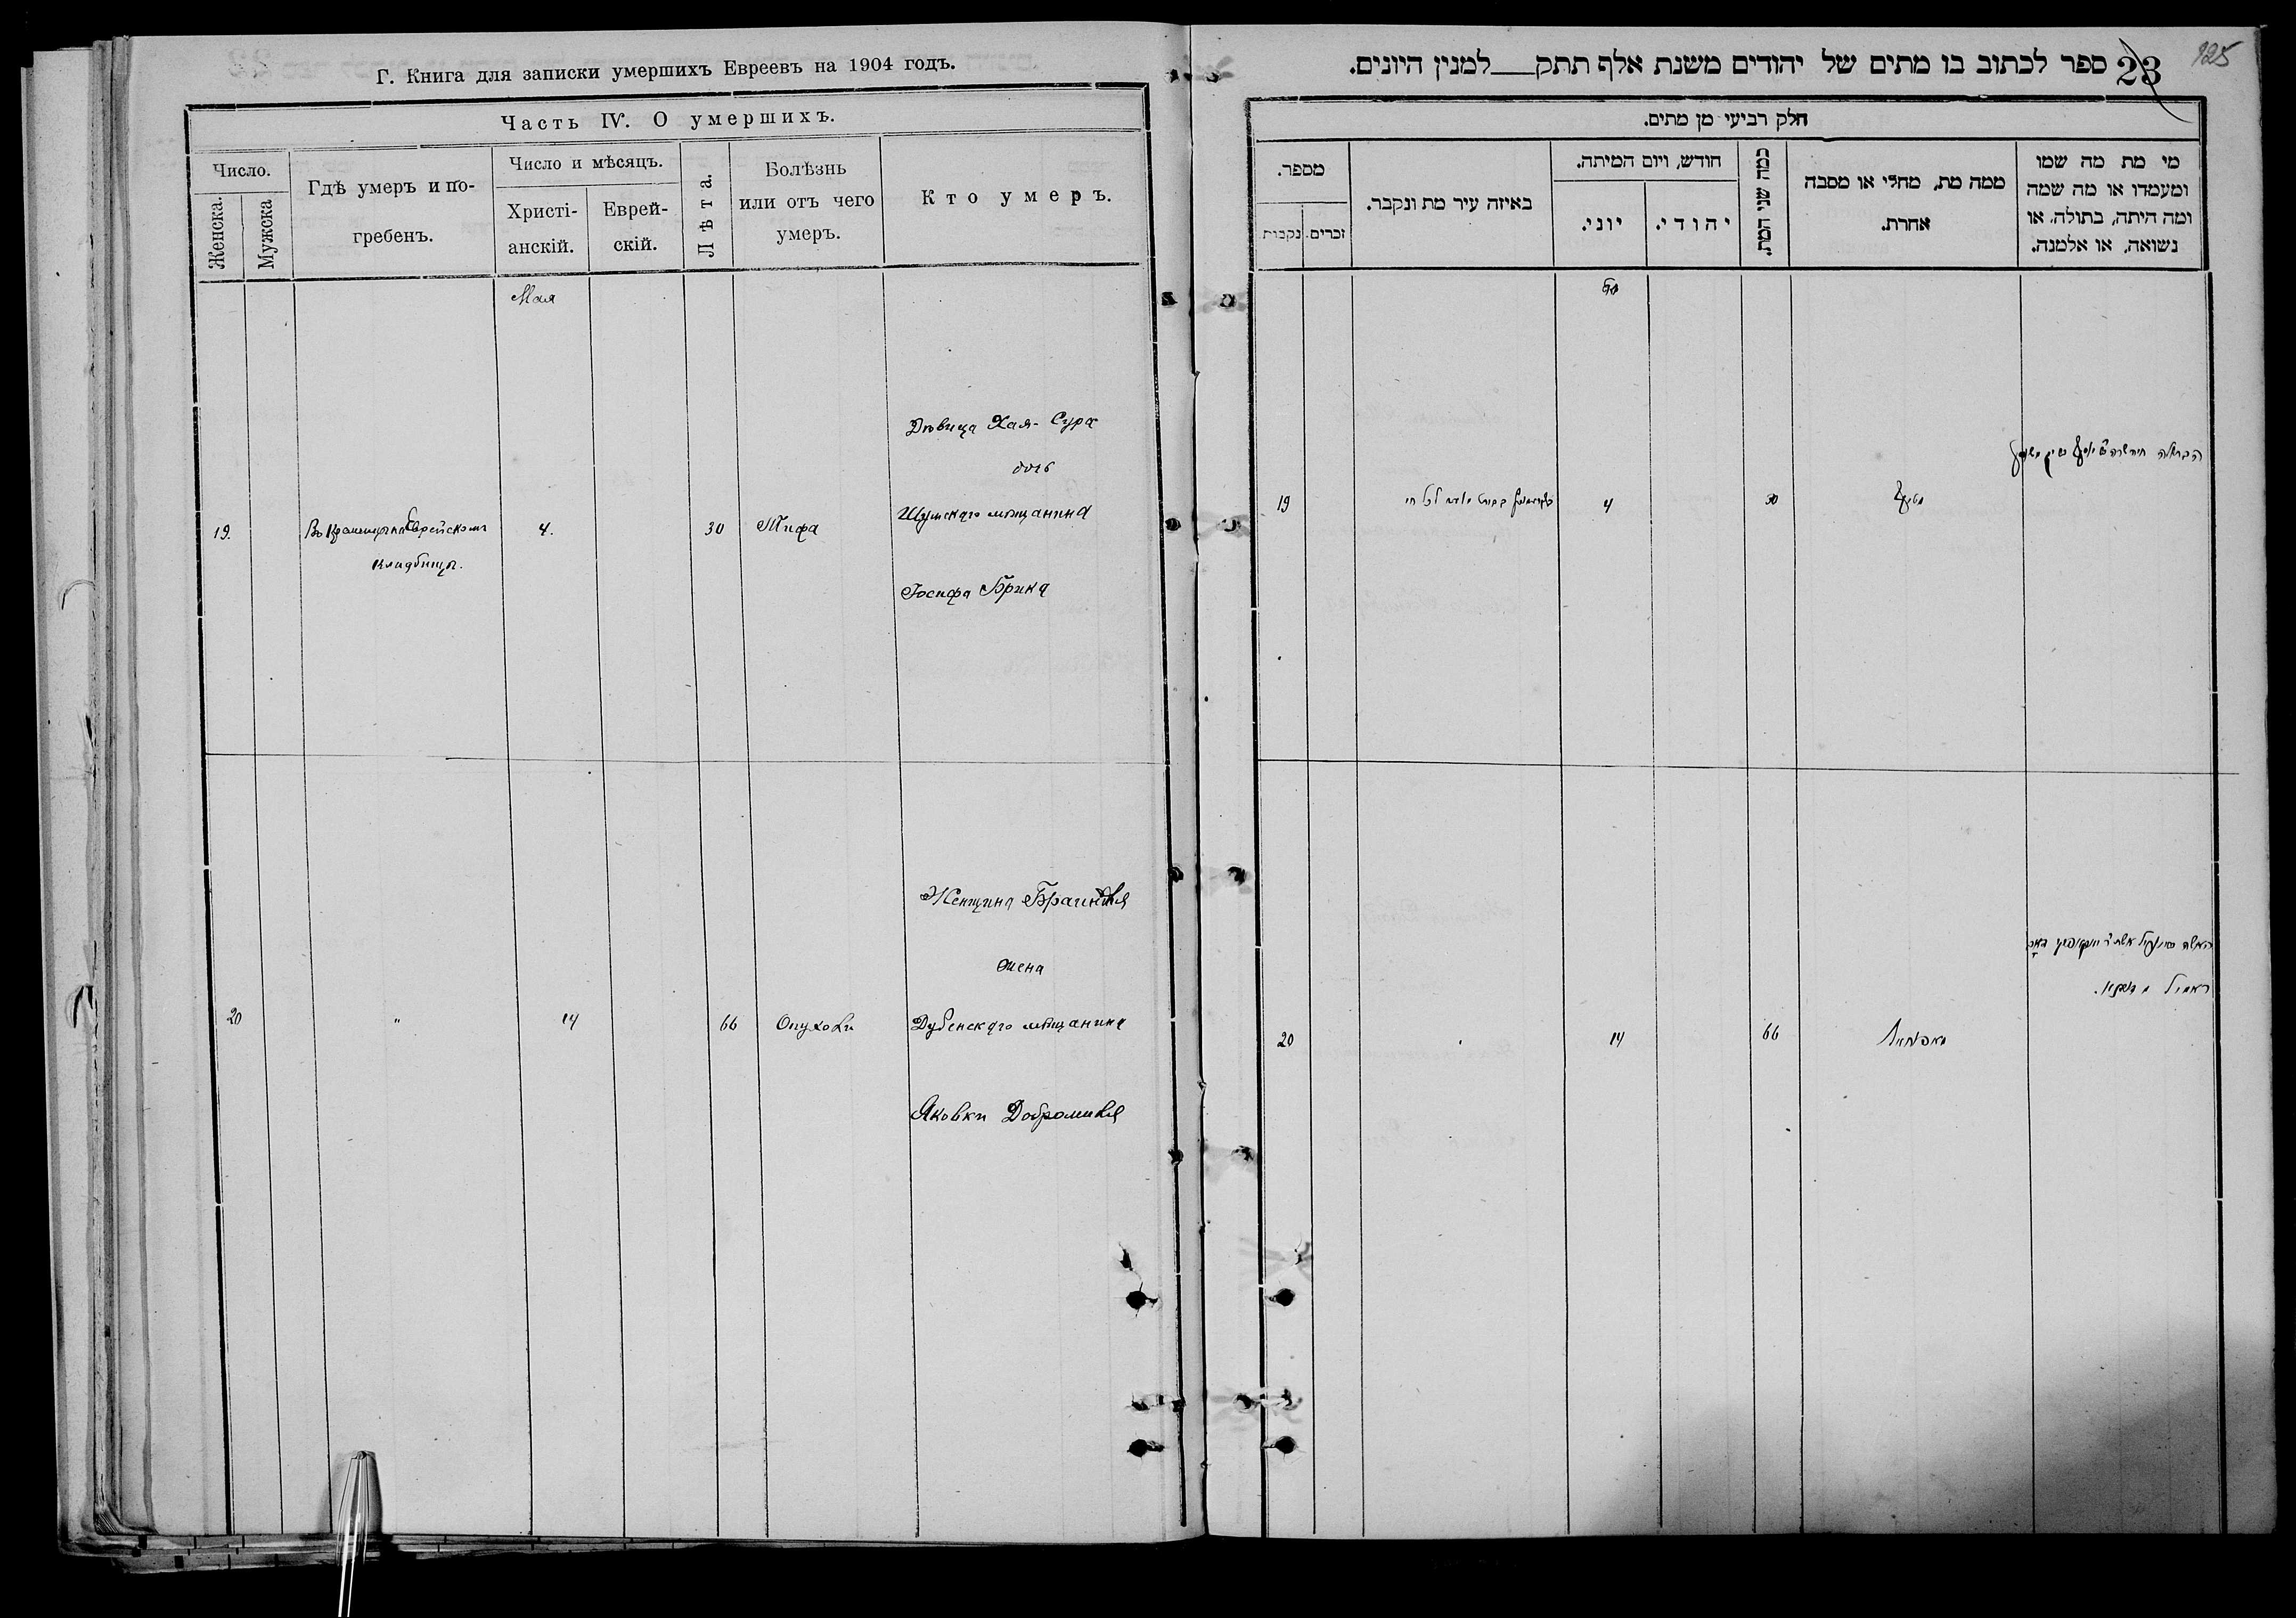 Г. Книга для записки умершихъ Евреевъ на 1904 годъ.
Часть IV. О умершихъ.
Число.
Женска.
Мужска
Гдѣ умеръ и по-
гребенъ.
Число и мѣсяцъ.
Христі-
анскій.
Еврей-
скій.
Лѣта.
Болѣзнь
или отъ чего
умеръ.
Кто умеръ.
Мая
19.
Въ Кременцѣ на Еврейскомъ
кладбищѣ.
4.
30
Тифа
Дѣвица Хая-Сура
дочь
Шумскаго мѣщанина
Іосифа Брика
20
"
14
66
Опухоли
Женщина Браиндля
жена
Дубенскаго мѣщанина
Яковки Добромиля
125
23
ספר לכתוב בו מתים של יהודים משנת אלף תתק__למנין היונים.
חלק רביעי מן מתים.
מספר.
נקבות
זכרים.
באיזה עיר מת ונקבר.
חודש, ויום המיתה.
יוני.
יהודי.
כמה שני המת.
ממה מת, מחלי או מסבה
אחרת.
מי מת מה שמו
ומעמדו או מה שמה
ומה היתה, בתולה, או
נשואה, או אלמנה.
19
4
30
20
14
66